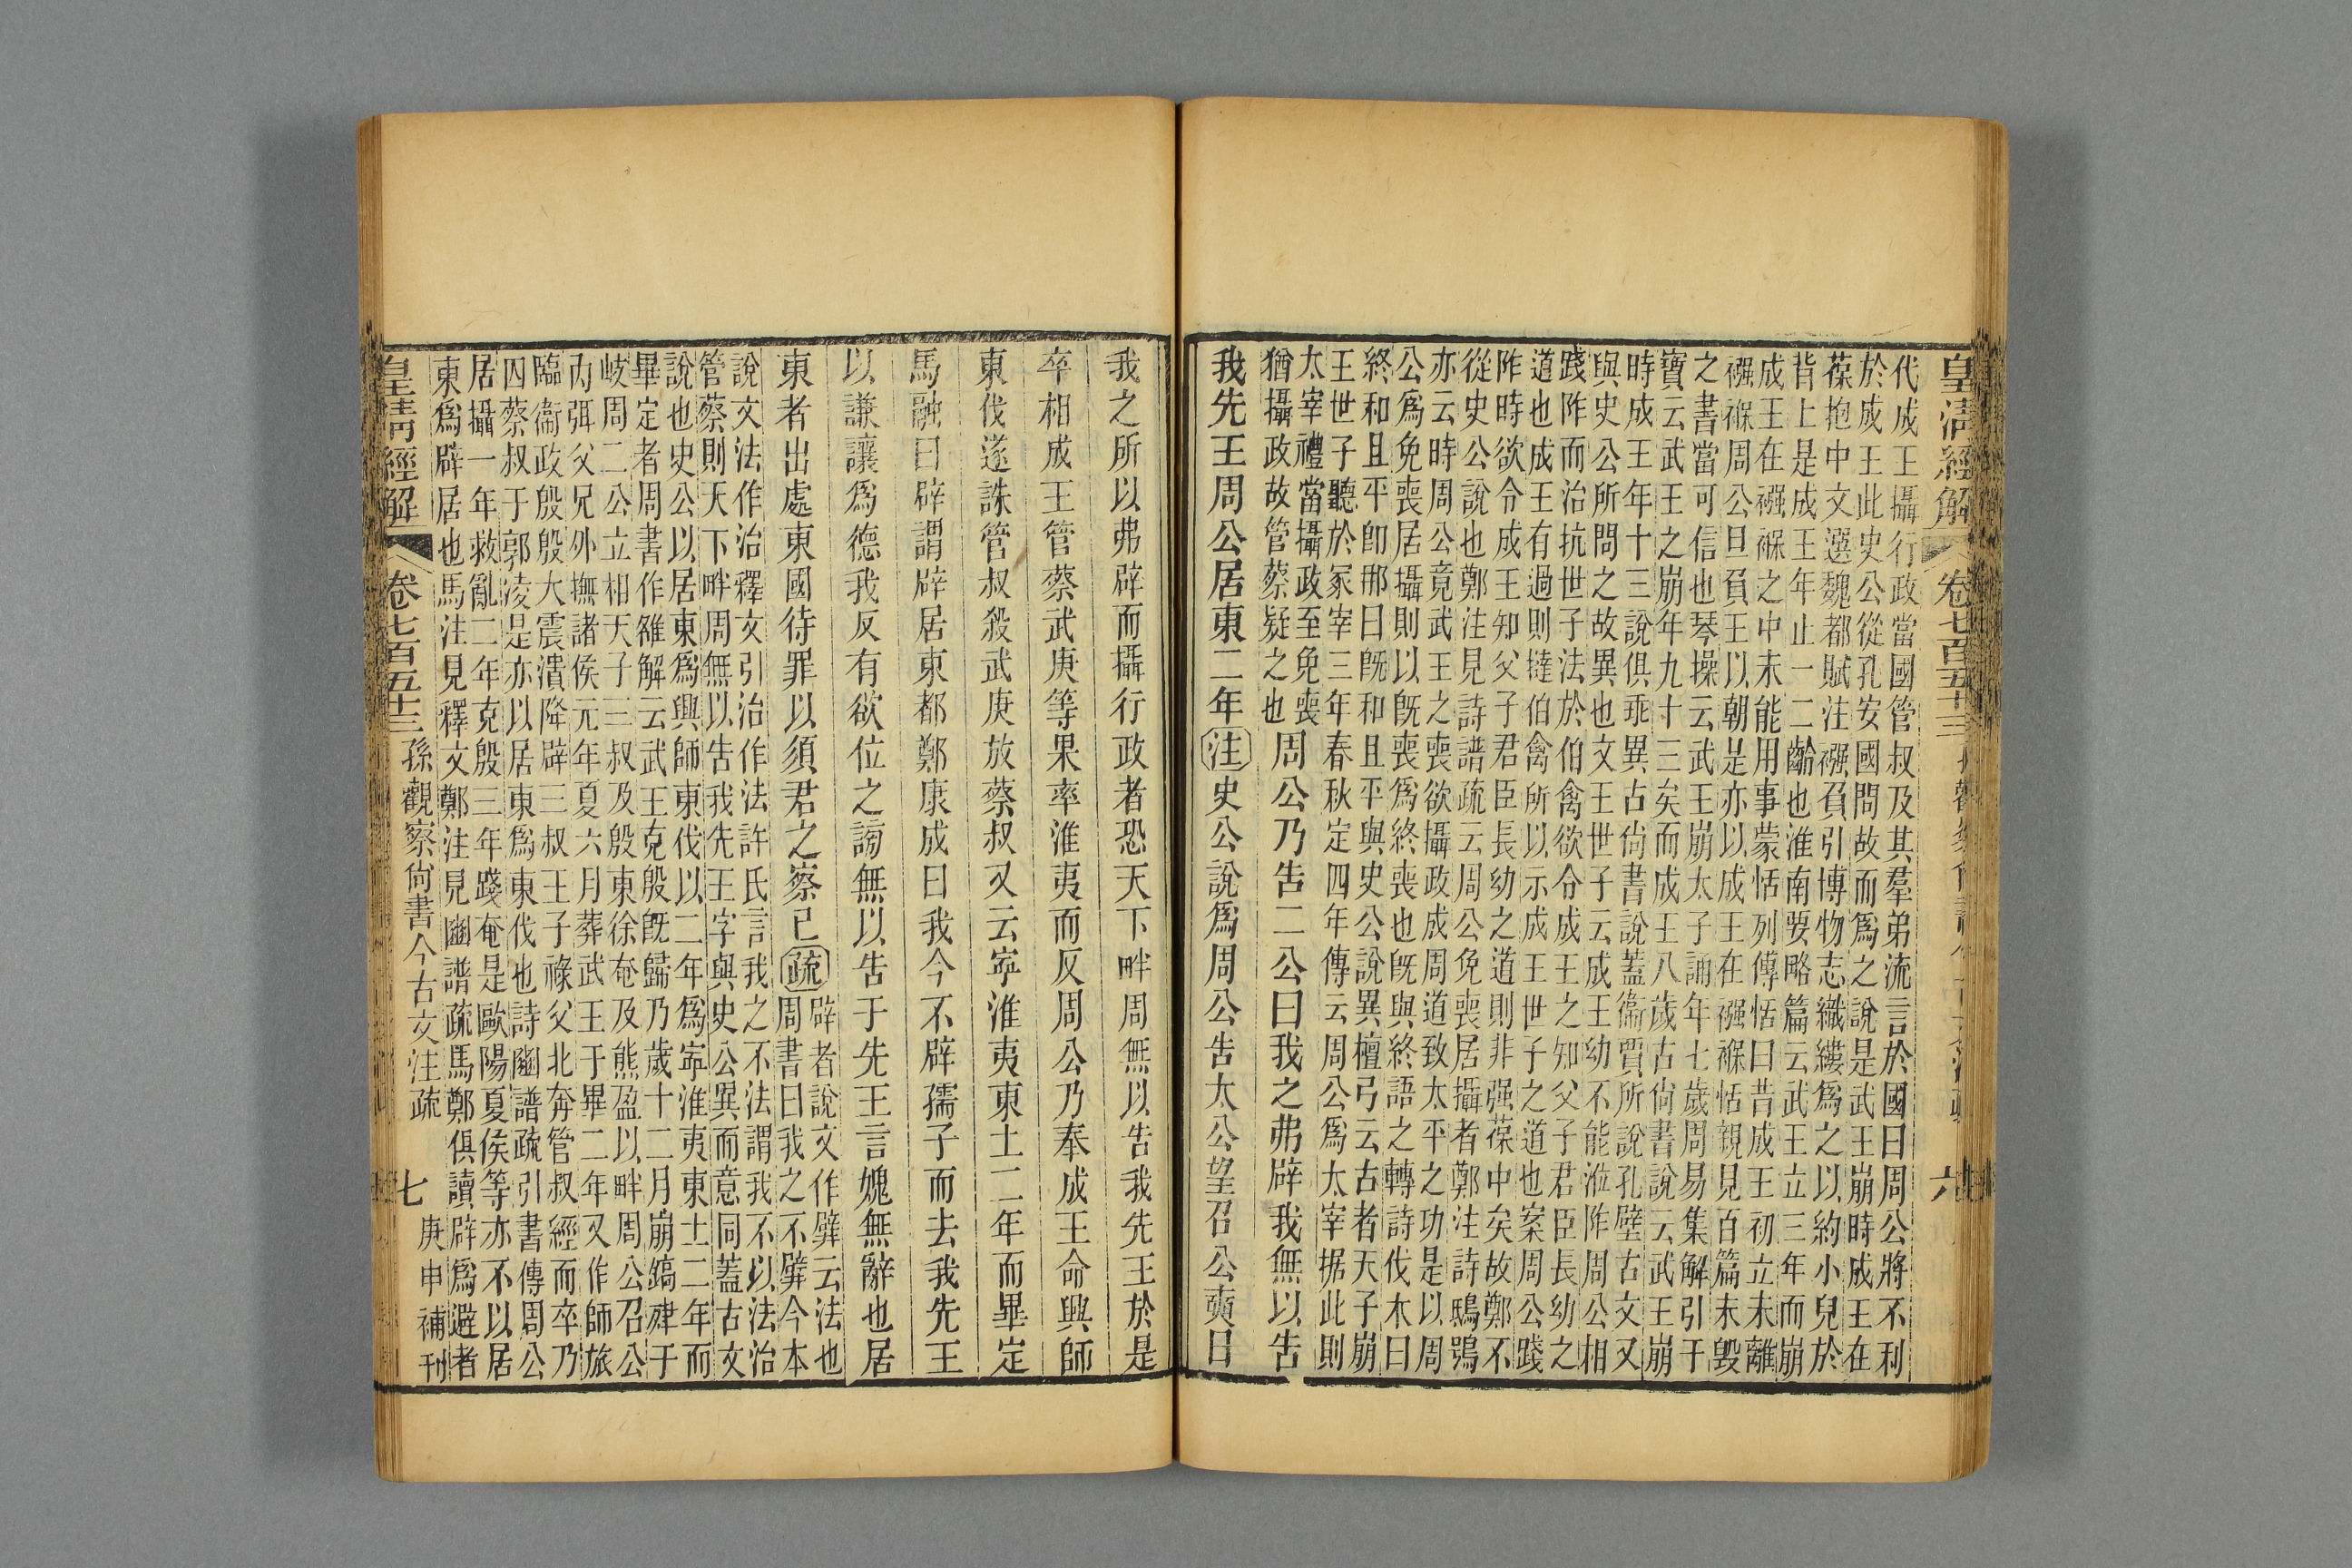 皇淸經解 卷七百五十三 六
代成王攝行政當國管叔及其羣弟流言於國曰周公將不利
於成王此史公從孔安國問故而爲之說是武王崩時成王在
葆抱中文選魏都賦注襁負引博物志織縷爲之以約小兒於
背上是成王年止一二齡也淮南要略篇云武王立三年而崩
成王在襁褓之中未能用事蒙恬列傳恬曰昔成王初立未離
襁褓周公旦負王以朝是亦以成王在襁褓恬親見百篇未毀
之書當可信也琴操云武王崩太子誦年七歲周易集解引于
寶云武王之崩年九十三矣而成王八歲古尙書說云武王崩
時成王年十三說俱乖異古尙書說蓋衞賈所說孔壁古文又
與史公所問之故異也文王世子云成王幼不能涖阼周公相
踐阼而治抗世子法於伯禽欲令成王之知父子君臣長幼之
道也成王有過則撻伯禽所以示成王世子之道也案周公踐
阼時欲令成王知父子君臣長幼之道則非强葆中矣故鄭不
從史公說也鄭注見詩譜疏云周公免喪居攝者鄭注詩鴟鴞
亦云時周公竟武王之喪欲攝政成周道致太平之功是以周
公爲免喪居攝則以旣喪爲終喪也旣與終語之轉詩伐木曰
終和且平卽那曰旣和且平與史公說異檀弓云古者天子崩
王世子聽於冢宰三年春秋定四年傳云周公爲太宰据此則
太宰禮當攝政至免喪
猶攝政故管蔡疑之也
周公乃告二公曰我之弗辟我無以告
我先王周公居東二年注史公說爲周公告太公望召公奭曰
我之所以弗辟而攝行政者恐天下畔周無以告我先王於是
卒相成王管蔡武庚等果率淮夷而反周公乃奉成王命興師
東伐遂誅管叔殺武庚放蔡叔又云寧淮夷東土二年而畢定
馬融曰辟謂辟居東都鄭康成曰我今不辟孺子而去我先王
以謙讓爲德我反有欲位之謗無以告于先王言媿無辭也居
東者出處東國待罪以須君之察己疏
辟者說文作㢸云法也
周書曰我之不㢸今本
說文法作治釋文引治作法許氏言我之不法謂我不以法治
管蔡則天下畔周無以告我先王字與史公異而意同蓋古文
說也史公以居東爲興師東伐以二年爲寧淮夷東土二年而
畢定者周書作雒解云武王克殷旣歸乃歲十二月崩鎬肂于
岐周二公立相天子三叔及殷東徐奄及熊盈以畔周公召公
內弭父兄外撫諸侯元年夏六月葬武王于畢二年又作師旅
臨衞政殷殷大震潰降辟三叔王子祿父北奔管叔經而卒乃
囚蔡叔于郭凌是亦以居東爲東伐也詩豳譜疏引書傳周公
居攝一年救亂二年克殷三年踐奄是歐陽夏侯等亦不以居
東爲辟居也馬注見釋文鄭注見豳譜疏馬鄭俱讀辟爲避者
皇淸經解 卷七百五十三 孫觀察尙書今古文注疏 七 庚申補刊